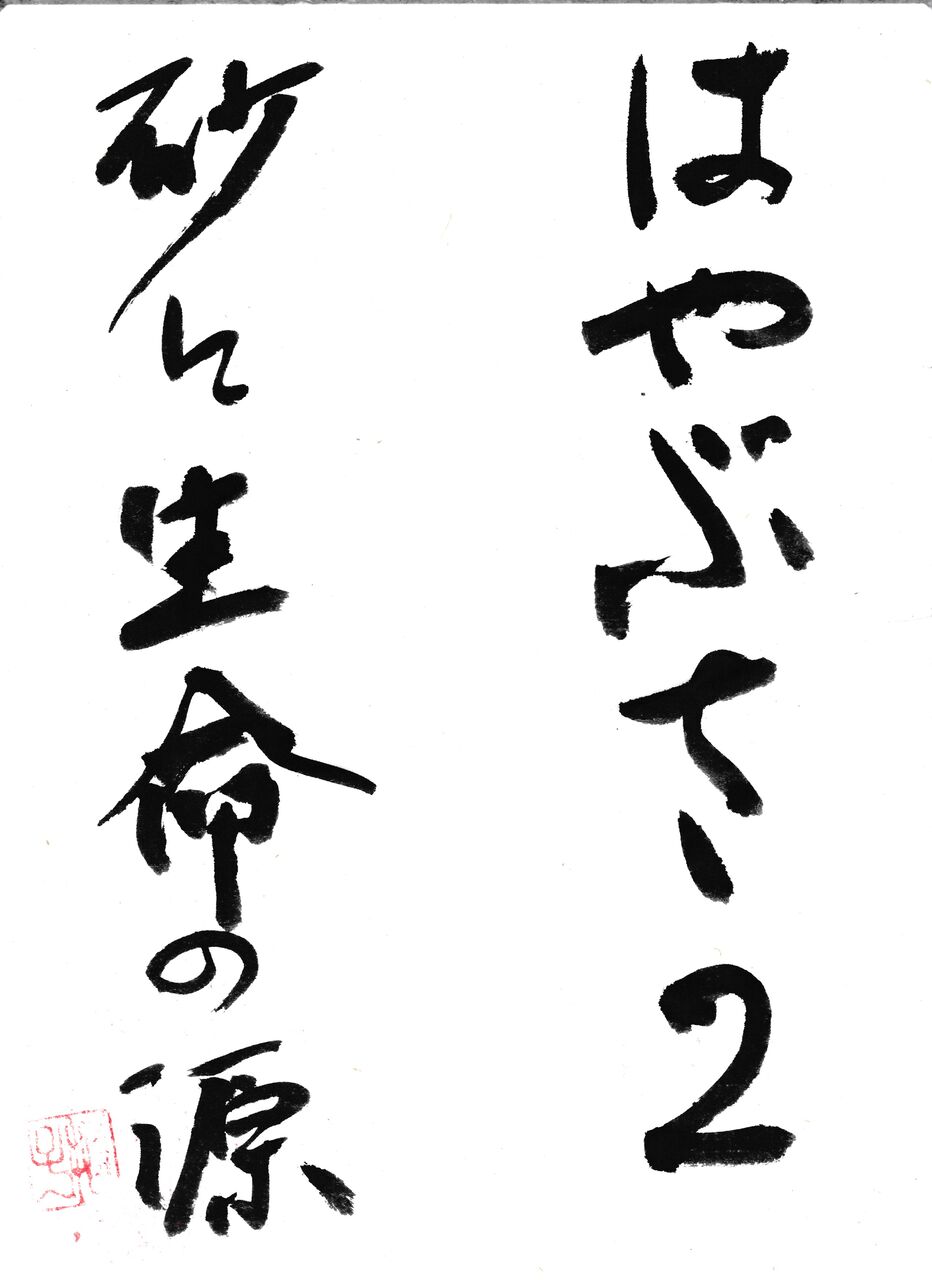 はやぶさ2
砂に生命の源